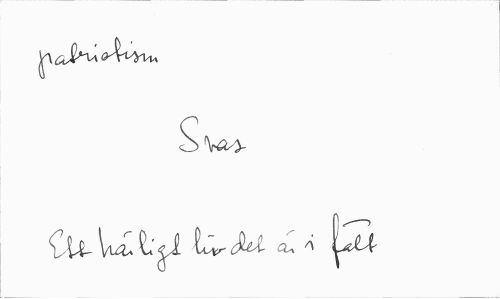 patriotism
Svas
Ett härligt liv det är i fält